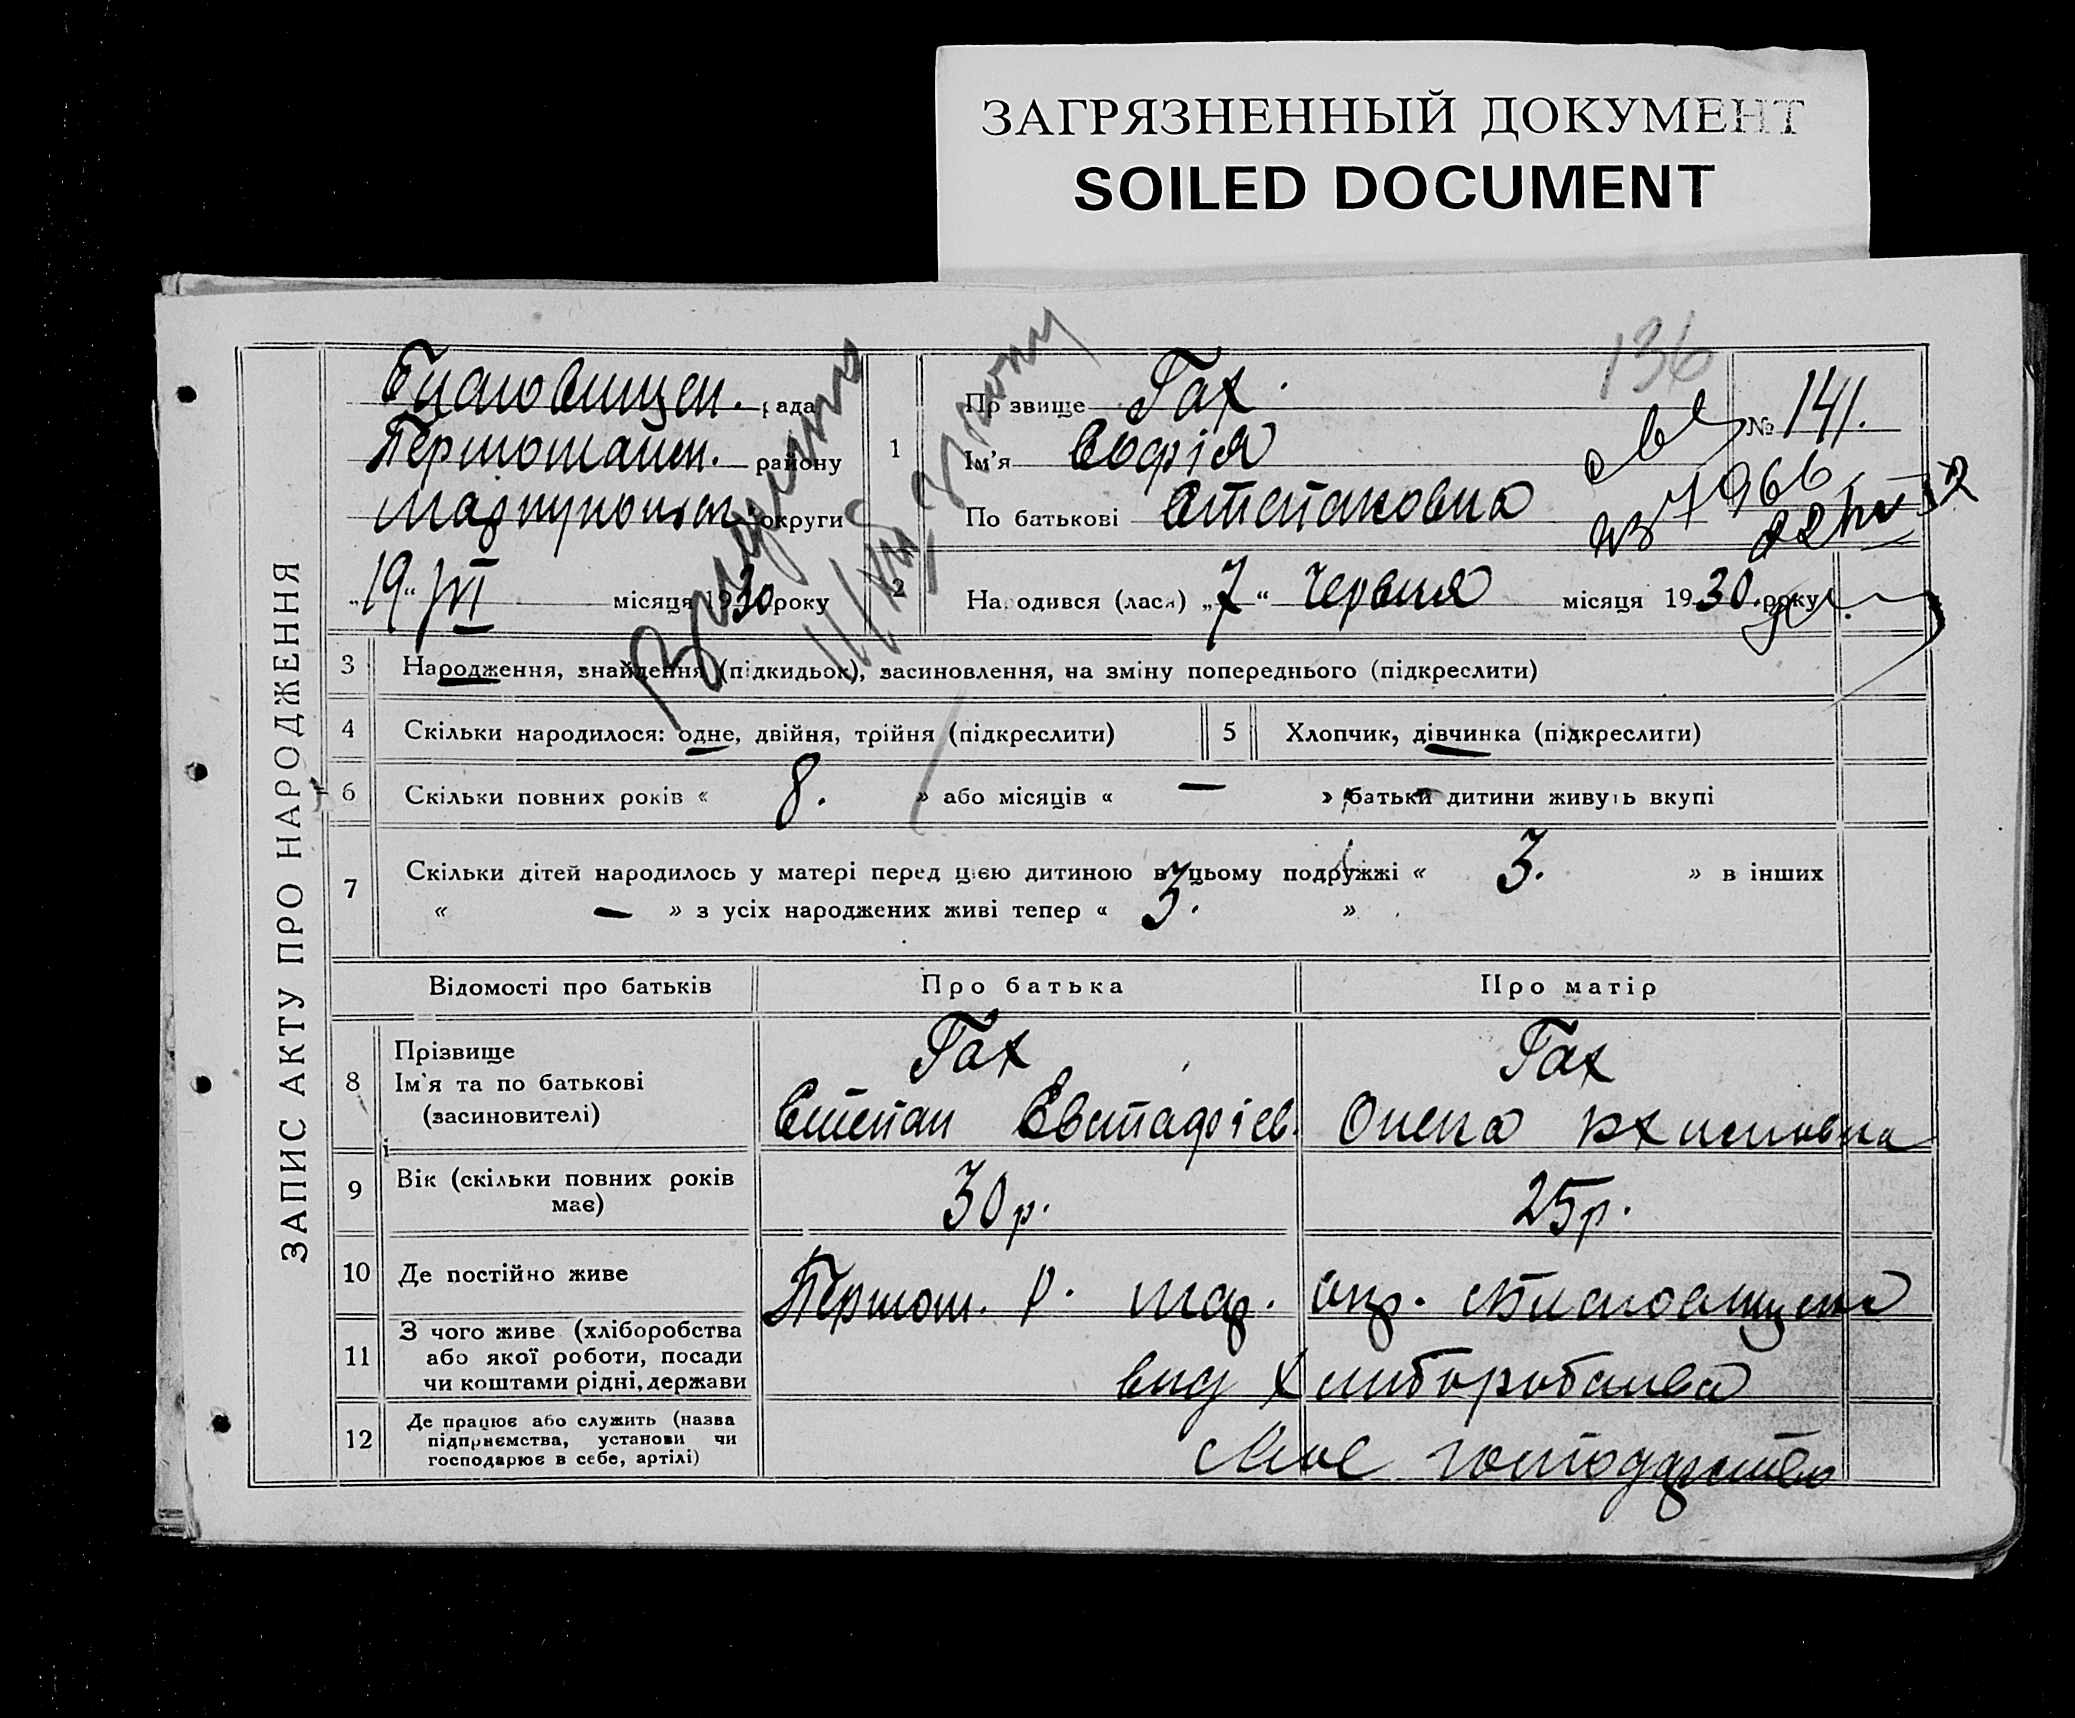 ЗАГРЯЗНЕННЫЙ ДОКУМЕНТ
SOILED DOCUMENT
136
ЗАПИС АКТУ ПРО НАРОДЖЕННЯ
рада
району
округи
„19“ VII місяця 1930 року
1
Прізвище Гах.
Ім'я Софія
По батькові Степановна
№ 141.
2 Народився (лася) „7“ Червня місяця 1930. року
3 Народження, знайдення (підкидьок), засиновлення, на зміну попереднього (підкреслити)
4 Скільки народилося: одне, двійня, трійня (підкреслити)
5 Хлопчик, дівчинка (підкреслити)
6 Скільки повних років « 8. » або місяців « — » батьки дитини живуть вкупі
7 Скільки дітей народилось у матері перед цією дитиною в цьому подружжі « 3. » в інших
« — » з усіх народжених живі тепер « 3. »
Відомості про батьків Про батька Про матір
8 Прізвище
Ім'я та по батькові
(засиновителі)
Гах
Степан Євстафієв.
Гах
Олена
9 Вік (скільки повних років має) 30 р. 25 р.
10 Де постійно живе Першот. р. Мар. окр.
11 З чого живе (хліборобства або якої роботи, посади чи коштами рідні, держави
вид хлиборобства
12 Де працює або служить (назва підприємства, установи чи господарює в себе, артілі)